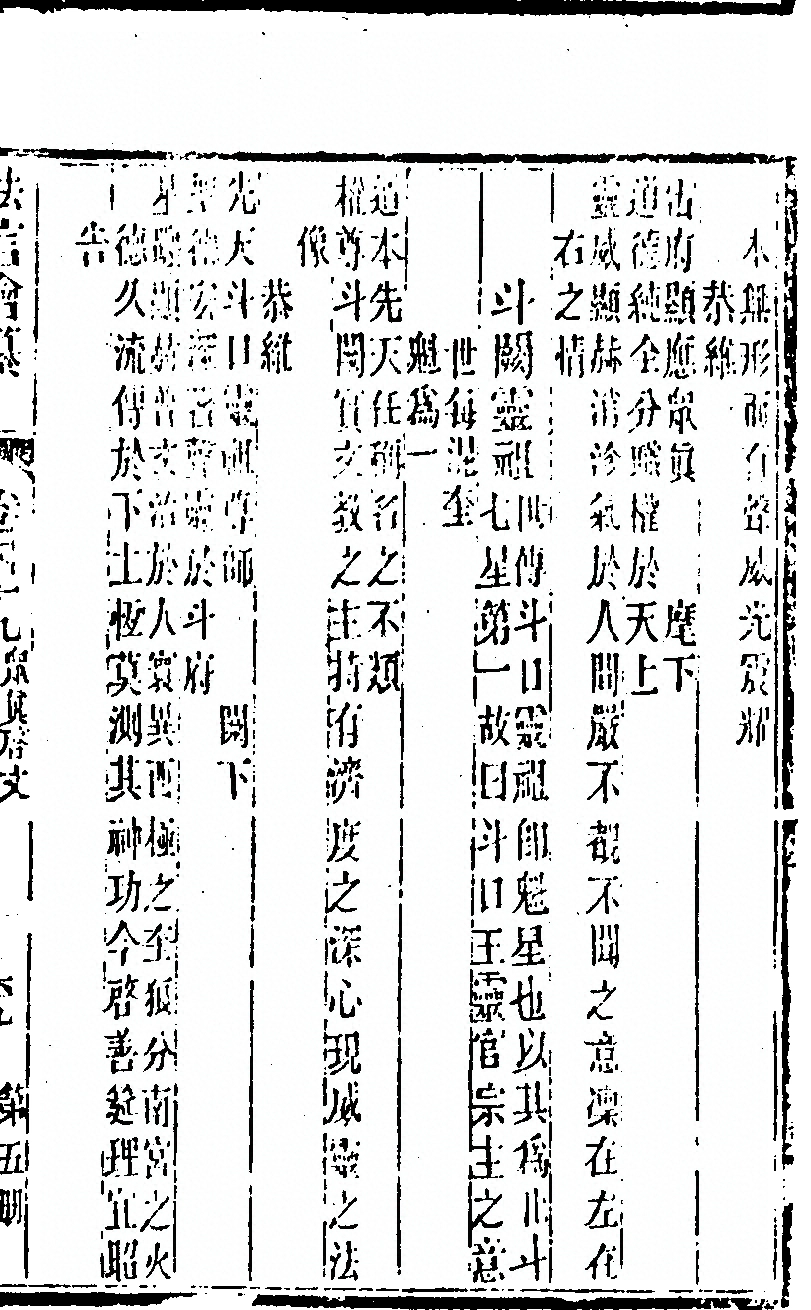 本無形而有聲威光震烈
恭維
雷府顯應眾真 麾下
道德純全分職權於天上
靈威顯赫消沴氣於人間嚴不覩不聞之意凜在左在
右之情
斗闕靈祖世傳斗口靈祖即魁星也以其為北斗
七星第一故曰斗口王靈官宗主之意
世每混全
魁爲一
道本先天任稱名之不類
權尊斗閣實文教之主持有濟度之深心現威靈之法
像
恭維
先天斗口靈祖尊師 闕下
聖德宏深 聲靈於斗府
星躔顯 普文治於人寰異西極之金狼分南宮之火
德久流傳於下土恆莫測其神功今啓善筵理宜昭
告
法言會纂 卷 十九眾真啓文 第五冊